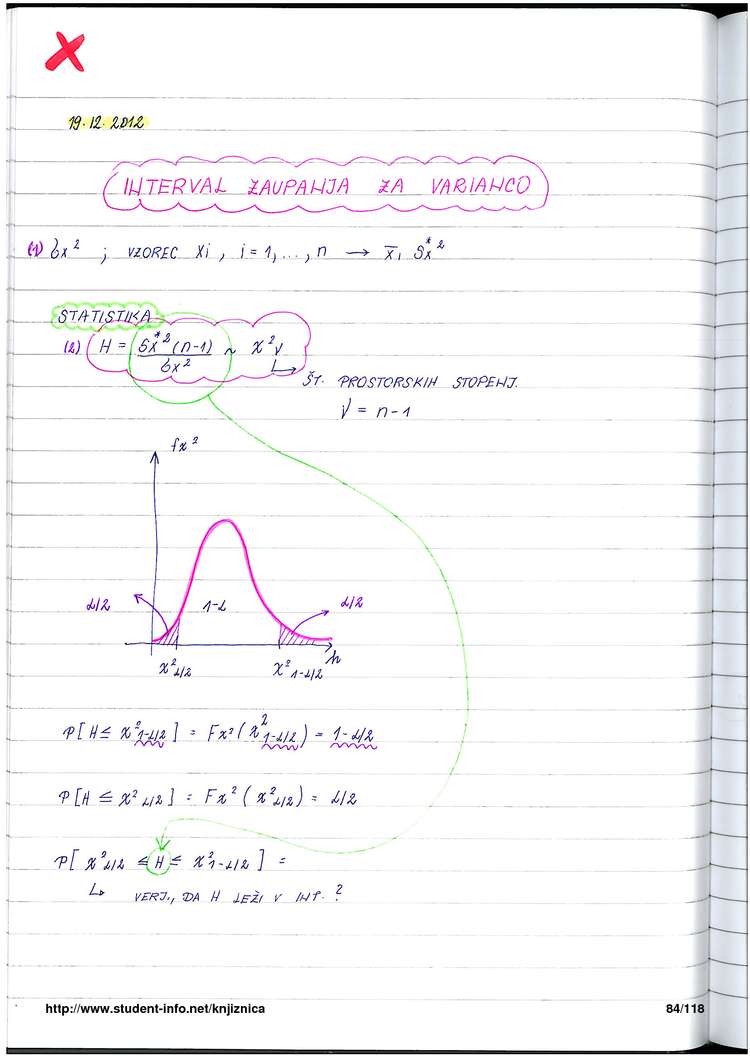 19.12.2012
INTERVAL ZAUPANJA ZA VARIANCO
(1) σx² ; VZOREC Xi, i = 1, ..., n → x̄, Sx*²
STATISTIKA
(2) H = Sx*² (n-1) / σx² ~ χ²ν
↳ ŠT. PROSTORSKIH STOPENJ.
ν = n-1
fχ²
α/2 1-α α/2
χ²α/2 χ²1-α/2 h
P[H ≤ χ²1-α/2] = Fχ²(χ²1-α/2) = 1-α/2
P[H ≤ χ²α/2] = Fχ²(χ²α/2) = α/2
P[χ²α/2 ≤ H ≤ χ²1-α/2] =
↳ VERJ., DA H LEŽI V INT. ?
http://www.student-info.net/knjiznica 84/118